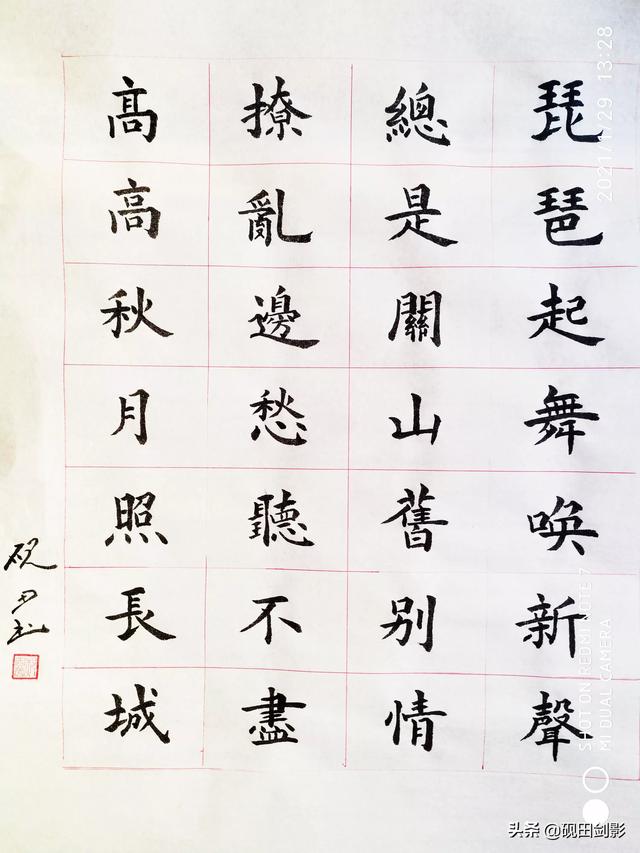 琵琶起舞唤新聲
總是關山舊别情
撩亂邊愁聽不盡
高高秋月照長城
砚田
2021/1/29 13:28
SHOT ON REDMI NOTE 7
MI DUAL CAMERA
头条 @砚田剑影